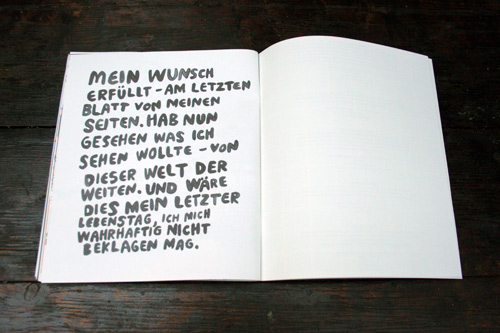 MEIN WUNSCH
ERFÜLLT - AM LETZTEN
BLATT VON MEINEN
SEITEN. HAB NUN
GESEHEN WAS ICH
SEHEN WOLLTE - VON
DIESER WELT DER
WEITEN. UND WÄRE
DIES MEIN LETZTER
LEBENSTAG, ICH MICH
WAHRHAFTIG NICHT
BEKLAGEN MAG.